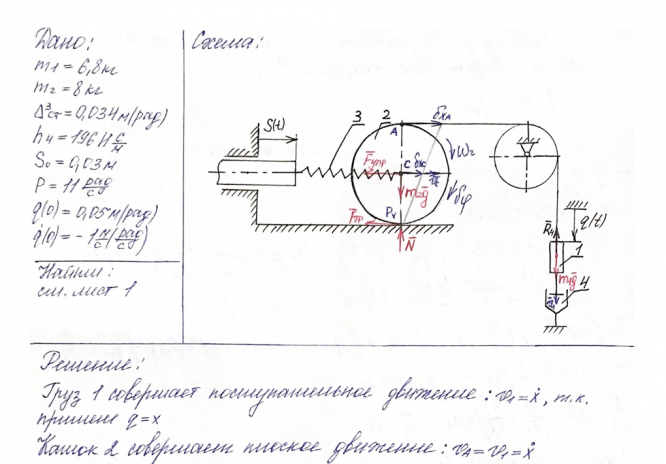 Дано:
m1 = 6,8 кг
m2 = 8 кг
Δ³ст = 0,034 м (рад)
h4 = 196 Н с/м
S0 = 0,03 м
P = 11 рад/с
q(0) = 0,05 м (рад)
q̇(0) = - 1 м/с (рад/с)
Найти:
см. лист 1
Схема:
S(t)
3
2
A
δxA
ω2
F̄упр
C
δxc
δφ
m2ḡ
F̄тр
Pv
N̄
R̄4
q(t)
1
m1ḡ
4
Решение:
Груз 1 совершает поступательное движение: v1 = ẋ, т.к.
примем q = x
Каток 2 совершает плоское движение: vA = v1 = ẋ